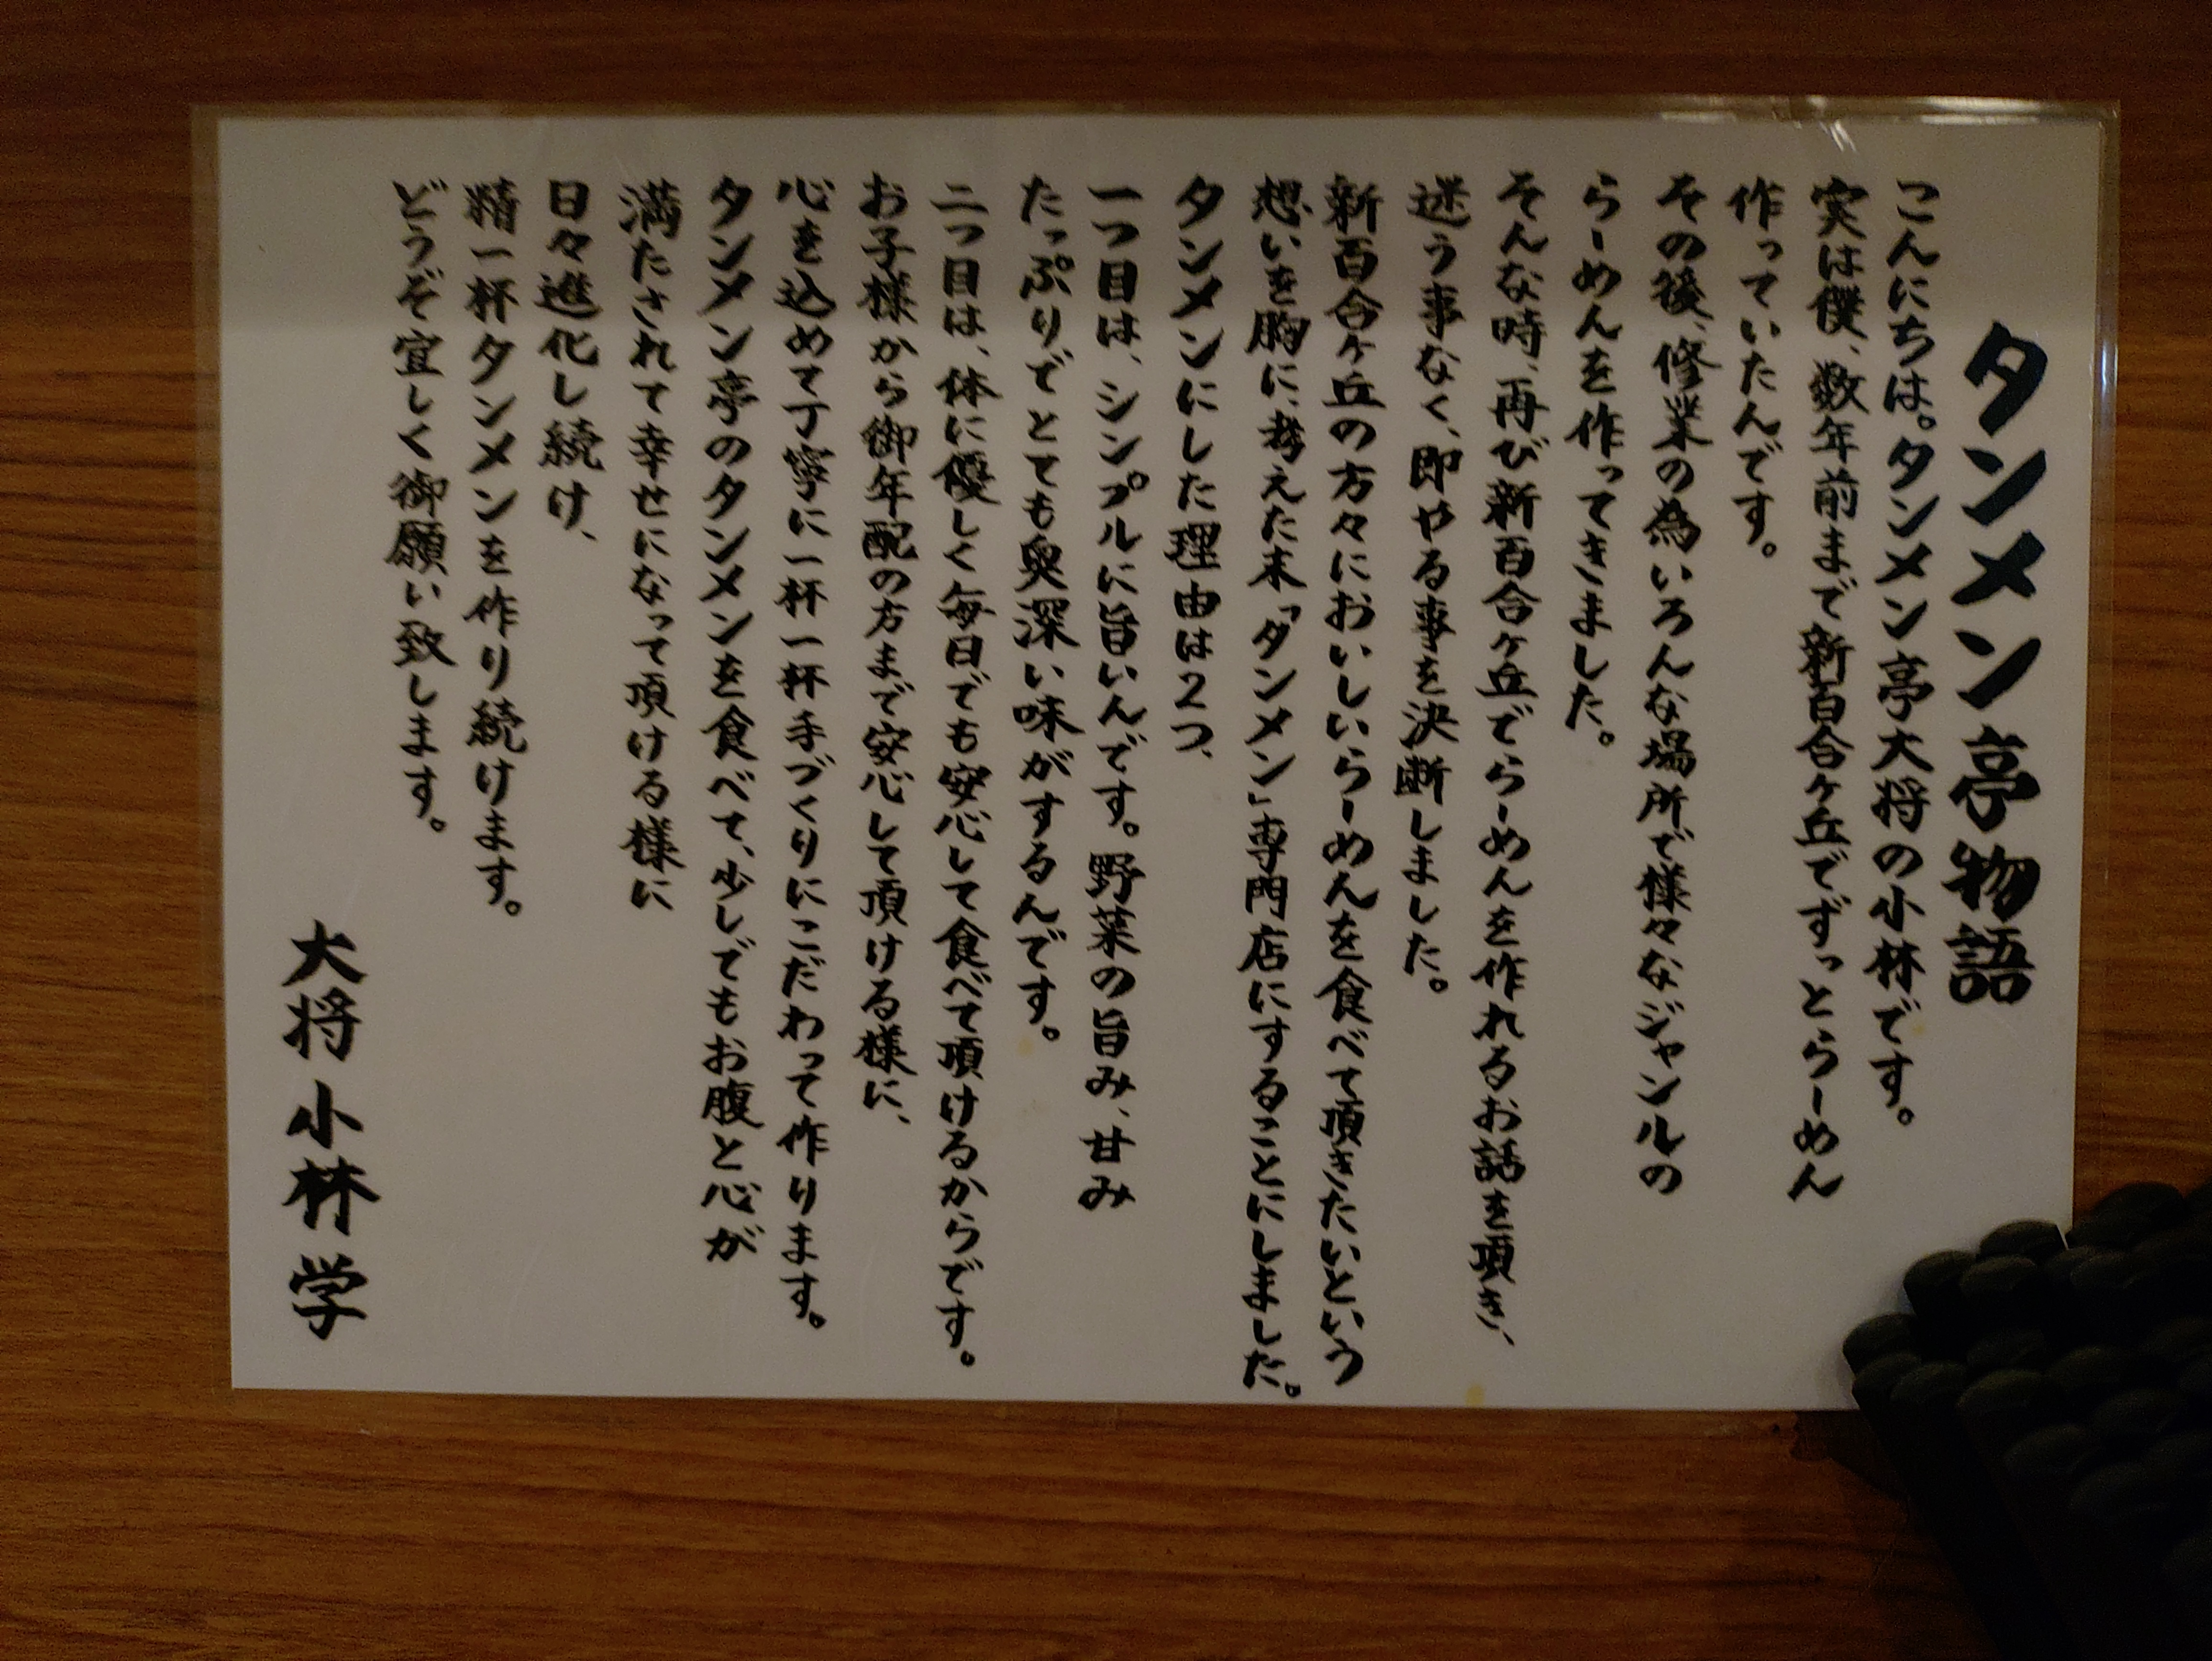 タンメン亭物語
こんにちは。タンメン亭大将の小林です。
実は僕、数年前まで新百合ヶ丘でずっとらーめん
作っていたんです。
その後、修業の為いろんな場所で様々なジャンルの
らーめんを作ってきました。
そんな時、再び新百合ヶ丘でらーめんを作れるお話を頂き、
迷う事なく、即やる事を決断しました。
新百合ヶ丘の方々においしいらーめんを食べて頂きたいという
想いを胸に、考えた末「タンメン」専門店にすることにしました。
タンメンにした理由は2つ、
一つ目は、シンプルに旨いんです。野菜の旨み、甘み
たっぷりでとても奥深い味がするんです。
二つ目は、体に優しく毎日でも安心して食べて頂けるからです。
お子様から御年配の方まで安心して頂ける様に、
心を込めて丁寧に一杯一杯手づくりにこだわって作ります。
タンメン亭のタンメンを食べて、少しでもお腹と心が
満たされて幸せになって頂ける様に
日々進化し続け、
精一杯タンメンを作り続けます。
どうぞ宜しく御願い致します。
大将 小林 学